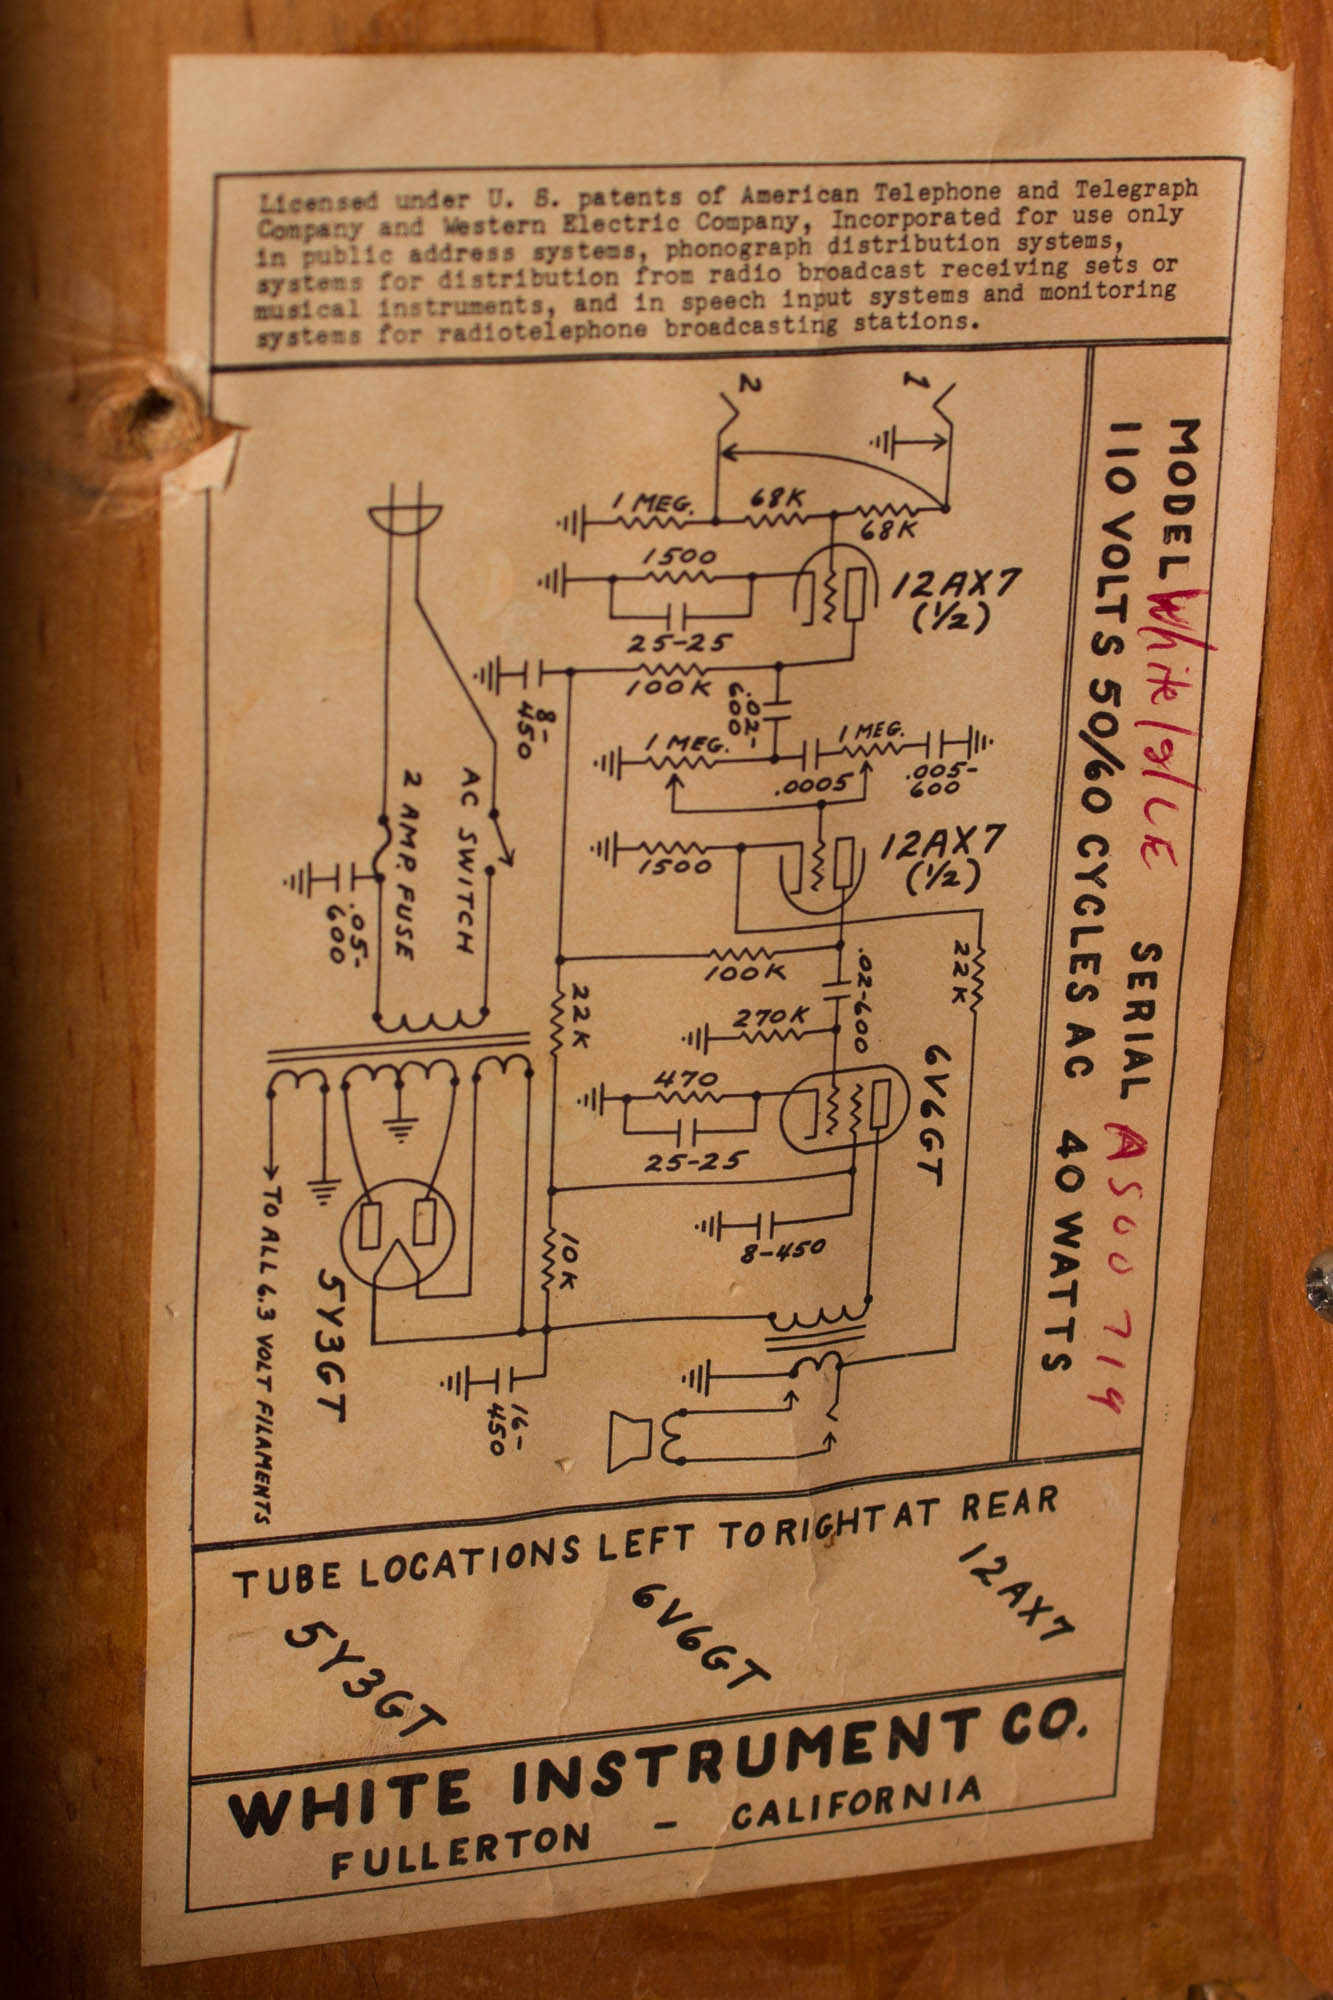 Licensed under U. S. patents of American Telephone and Telegraph
Company and Western Electric Company, Incorporated for use only
in public address systems, phonograph distribution systems,
systems for distribution from radio broadcast receiving sets or
musical instruments, and in speech input systems and monitoring
systems for radiotelephone broadcasting stations.
MODEL White SERIAL AS00719
110 VOLTS 50/60 CYCLES AC 40 WATTS
1
2
1 MEG.
68K
68K
1500
25-25
12AX7
(1/2)
100K
8-
450
.02-
600
1 MEG.
.0005
1 MEG.
.005-
600
12AX7
(1/2)
1500
22K
100K
.02-600
270K
22K
6V6GT
470
25-25
8-450
10K
16-
450
AC SWITCH
2 AMP. FUSE
.05-
600
5Y3GT
TO ALL 6.3 VOLT FILAMENTS
TUBE LOCATIONS LEFT TO RIGHT AT REAR
5Y3GT
6V6GT
12AX7
WHITE INSTRUMENT CO.
FULLERTON - CALIFORNIA